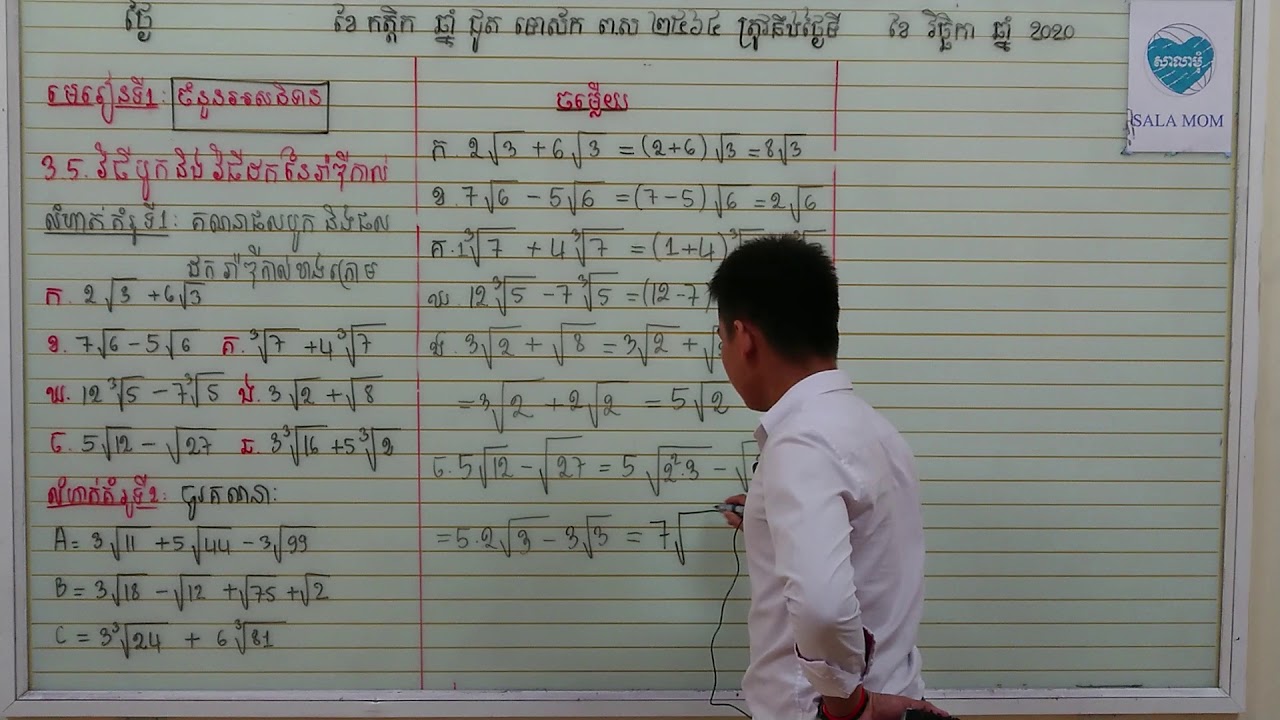 ថ្ងៃ ខែ កត្តិក ឆ្នាំ ជូត ទោស័ក ព.ស ២៥៦៤ ត្រូវនឹងថ្ងៃទី ខែ វិច្ឆិកា ឆ្នាំ 2020
សាលាមុំ
SALA MOM
មេរៀនទី1: ចំនួនអសនិទាន
3.5. វិធីបូក និង វិធីដកនៃរ៉ាឌីកាល់
លំហាត់គំរូទី1: គណនាផលបូក និងផល
ដក រ៉ាឌីកាល់ខាងក្រោម
ក. 2√3 + 6√3
ខ. 7√6 − 5√6 គ. ³√7 + 4³√7
ឃ. 12³√5 − 7³√5 ង. 3√2 + √8
ច. 5√12 − √27 ឆ. 3³√16 + 5³√2
លំហាត់គំរូទី2: ចូរគណនា:
A = 3√11 + 5√44 − 3√99
B = 3√18 − √12 + √75 + √2
C = 3³√24 + 6³√81
ចម្លើយ
ក. 2√3 + 6√3 = (2+6)√3 = 8√3
ខ. 7√6 − 5√6 = (7−5)√6 = 2√6
គ. 1³√7 + 4³√7 = (1+4)³√
ឃ. 12³√5 − 7³√5 = (12−7)
ង. 3√2 + √8 = 3√2 + √
= ³√2 + 2√2 = 5√2
ច. 5√12 − √27 = 5√2².3 − √
= 5.2√3 − 3√3 = 7√